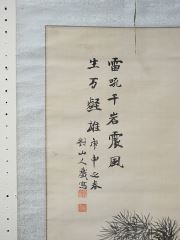 雷吼千岩震風
生万壑雄庚申之春
對山人廣寫